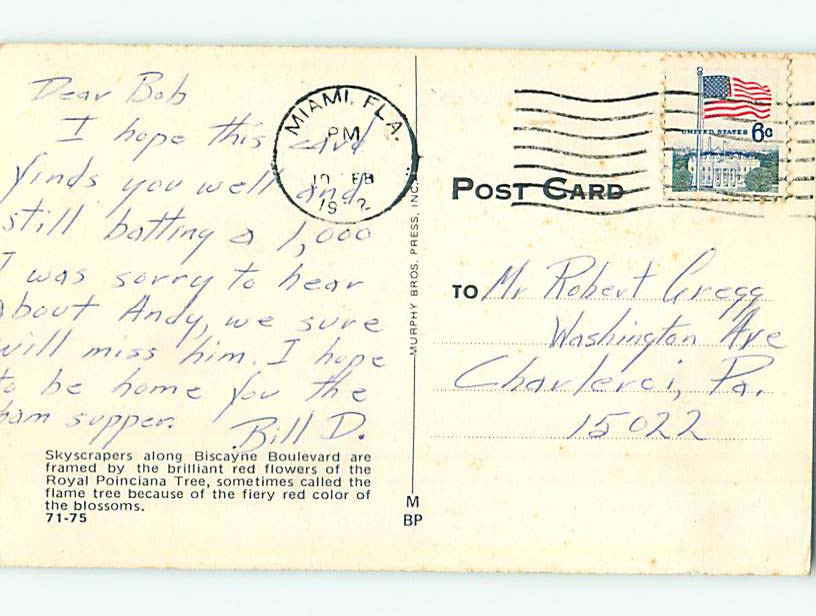 Dear Bob
I hope this card
finds you well and
still batting a 1,000
I was sorry to hear
about Andy, we sure
will miss him. I hope
to be home you the
ham supper.
Bill D.
Skyscrapers along Biscayne Boulevard are
framed by the brilliant red flowers of the
Royal Poinciana Tree, sometimes called the
flame tree because of the fiery red color of
the blossoms.
71-75
MIAMI, FLA.
PM
FEB
MURPHY BROS. PRESS, INC.
M
BP
UNITED STATES 6c
POST CARD
TO Mr Robert Gregg
Washington Ave
Charleroi, Pa.
15022